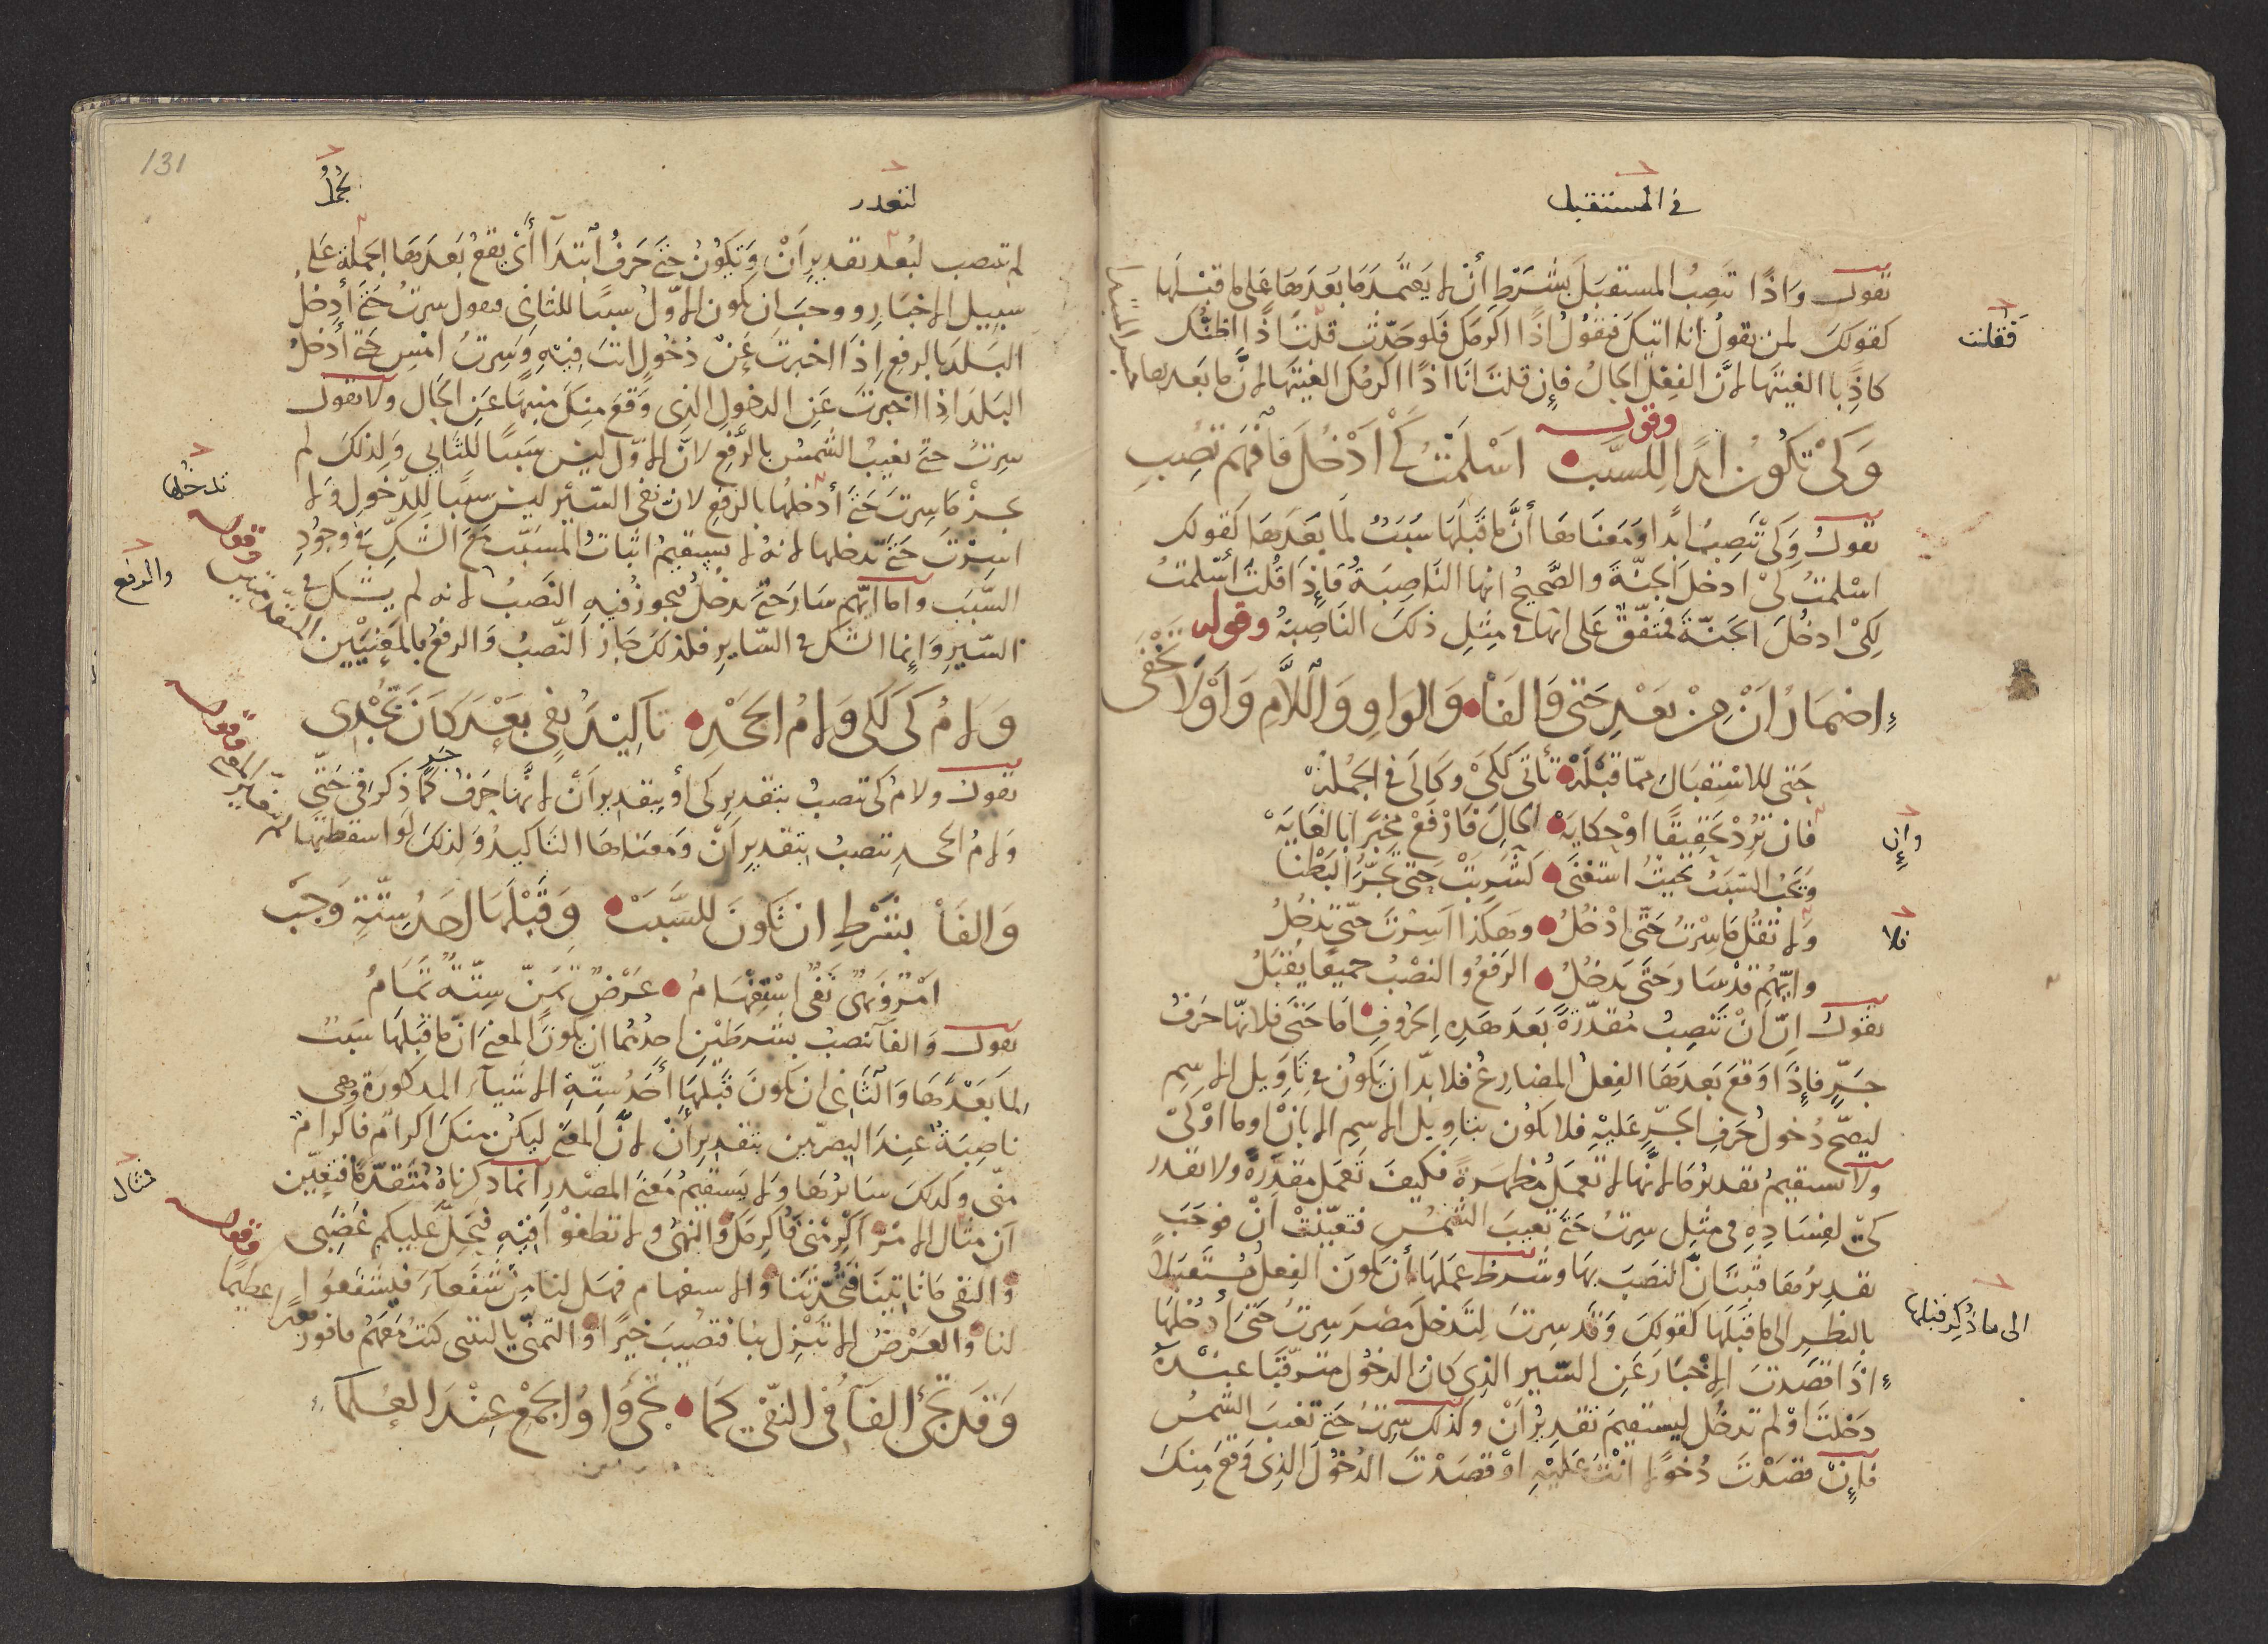 في المستقبل
تقول واذًا تنصِبُ المستقبَل بشَرطِ أنْ لا يَعتمد مَا بَعدَهَا عَلى ما قبْلَها
كقولكَ لمن يقولُ انا اتيكَ فتقولُ اذًا اكرمَكَ فلو حَدّثتَ قلتَ اذًا اظنُّكَ
فقلت
كاذِبا الغيتَها لانَّ الفِعْل الحالُ فإن قلتَ انَا اذًا اكرمُكَ الغيتَها لانَّ ما بَعدها
وقوله
وَكَيْ تكُونُ ابدًا للسَّببْ اسْلَمْتُ كَيْ ادْخُلَ فافهَم تُصِبِ
تقول وَكَيْ تنصِبُ ابدًا ومَعنَاها أنَّ ما قَبلَهَا سَبَبٌ لمَا بَعدَهَا كَقولك
اسْلمتُ كَيْ ادْخلَ الجنّةَ والصَّحيحُ انها النَاصِبَةُ فَإِذَا قُلتَ أسْلمتُ
لِكَيْ ادخُلَ الجَنّةَ فمتفَّقٌ عَلى انها في مِثلِ ذلكَ النَاصِبَةُ وقوله
اِضمَارُ اَنْ مِنْ بَعْدِ حَتى وَالفَاء وَالوَاوِ وَاللَّامِ وَاَوْ لَا تَخْفَى
حَتى للاسْتقبَال ممّا قَبْلَهْ تأتي كَكَيْ وكَالى في الجُمْلَهْ
فان تُرِدْ تحقِيقًا اوْ حِكايَهْ الحالِ فَارْفَعْ مخبَرًا بالغَايَهْ
وإن
وَيَجبُ السّبَبُ بحيثُ استغنَى كَشَرِبَتْ حَتى يَجُرُّ البَطْنَا
وَلا تقُل ما سِرْتُ حَتَّى ادْخُلُ وهَكَذا اَسِرْتَ حَتّى تدْخُلُ
فلا
وايّهُم قدْ سَارَ حَتَّى يَدخُلُ الرَفعُ والنصْبُ جميعًا يُقْبَلُ
تقول اِنّ اَنْ تَنصِبُ مُقدّرَةً بَعدَ هَذِهِ الحُروفِ اَمَا حَتَّى فلانّها حَرفُ
جَرٍّ فإِذَا وَقعَ بَعدَهَا الفِعلُ المضارعُ فلا بدّ ان يَكُونَ في تَاوِيل الاسِمِ
ليصحّ دُخولُ حَرفِ الجرّ عَليْهِ فلا يكُون بتاوِيل الاسِمِ الا بَانْ او ما اوْ كَيْ
ولا يستقيمُ تقديرُ مَا لانّها لا تعمَلُ مُظهَرةً فكيفَ تَعمَل مقدَّرةً ولا تقدر
كَيْ لفِسَادِهِ في مِثْلِ سِرتُ حَتى تغيبَ الشمسُ فتعيّنَتْ اَنْ فوجَبَ
تقدِيرُهَا فثبتَ انَّ النصَبَ بهَا وشَرطُ عَمَلهَا أن يكونَ الفِعلُ مُستَقبَلًا
بالنظَرِ الى ما قَبلَهَا كقولِكَ وَقَد سِرتَ لتَدخلَ مصْرَ سِرتُ حَتى أدْخُلَهَا
الى ما ذُكِرَ قبلها
اِذَا قصَدتَ الاخبَارَ عَنِ السّير الذِي كانَ الدخُول مترقّبًا عندَهُ
دَخلتَ اوْ لم تدخُل ليستقيمَ تقدِيرُ اَنْ وكذلكَ سِرتُ حَتى تغيبَ الشمسُ
فإِنْ قصَدْتَ دُخولا انْتَ عَليْهِ اوْ قصَدتَ الدُخُولَ الذِي وَقعَ مِنكَ
131
لتعذر
جملُ
لم تنصب لبُعد تقديرِ اَنْ وَتكُونُ حَتى حَرفُ ابتدَا أَيْ يقعُ بَعدَها الجملة عَلى
سبيل الاخبَارِ ووجبَ ان يكون الاوّلُ سببًا للثاني فتقول سرتُ حَتى أدخلُ
البَلدَ بالرفعِ اِذَا اخبرتَ عَنْ دُخولٍ انتَ فيْهِ وَسِرتُ امْسِ حَتى أدْخلُ
البَلدَ اذِا اخبرتَ عَنِ الدخولِ الذِي وَقعَ مِنكَ منبهًا عَنِ الحَال ولا تقول
سِرتُ حتى تغيبُ الشمسُ بالرَّفعِ لانّ الاوّل ليسَ سَببًا للثاني وَلِذلكَ لم
يجزْ مَا سِرتُ حَتى أدْخلُها بالرفعِ لانّ نفي السّيْر ليسَ سببًا للدّخولِ وَلا
تدخلُها
اَسِرْتَ حَتى تدخلها لانهُ لا يستقيمُ اثباتُ المسَبّب مَعَ الشكِّ في وُجُودِ
السَّبَب وامّا ايّهم سَارَ حَتى يدخلُ فيجوزُ فيهِ النَصْبُ لانه لم يشك في
والرفع
السّيرِ وَإِنما الشكُ في السّايرِ فلذلكَ جَازَ النّصبُ وَالرفعُ بالمَعنيَيْن المتقدّمين
وقوله
وَلامُ كَي كَكَيْ وَلامُ الجَحْدِ تاكِيْدُ نَفيٍ بَعْدَ كَانَ تجْدِي
تقول ولامُ كَي تنصبُ بتقديرِ كَي أو بتقديرِ اَنْ لانّها حَرفُ جر كما ذكرَ في حَتّى
وَلامُ الجَحدِ تنصبُ بتقديرِ اَنْ ومَعناهَا التاكيدُ وَلذلكَ لَو اسقطتها لم
وَالفَا بشَرْطِ انْ تَكونَ للسَّببْ وَقَبْلَهَا احَدُ سِتّةٍ وَجَبْ
اَمْرٌ وَنَهيٌ نَفيٌ اسْتِفْهَامُ عَرْضٌ تمَنٍّ سِتّةٌ تمَامُ
تقول وَالفَا تنصبُ بشرطَيْن احدُهُما ان يكونَ المعنى انّ ما قَبلَها سَببٌ
لما بَعْدَهَا وَالثاني ان يكونَ قَبلَهَا أَحَدُ ستّةِ الاشيآءِ المذكورة وهي
ناصِبَةٌ عِندَ البصرّيين بتقديرِ أنْ لانَّ المعنى ليكن منكَ اكرام فاكرام
منّي وكذلكَ سَائرُهَا وَلا يَستقيمُ مَعنى المصْدرِ انما ذكرناهُ مُتقدّمًا فتعيّن
اَن مثَال الامْرِ اَكْرِمْني فاُكرِمَكَ والنَهيُ ولا تطغوْا فيْهِ فيَحِلَّ عَليكم غَضَبي
مثال
وقوله
وَالنفي مَا تاتيْنَا فتُحَدّثَنا وَالاستفهام فهَل لنا مِنْ شفَعآءَ فيشفعُوا
لنا وَالعَرْضُ الا تنْزِل بنا فتصيبَ خيْرًا وَالتمنّي يا ليتني كنتُ مَعَهُم فافوز
وَقَد تجيُ الفَآ في النّفيِ كمَا تجي وَاوُ الجَمْعِ عِنْدَ العُلمَاء